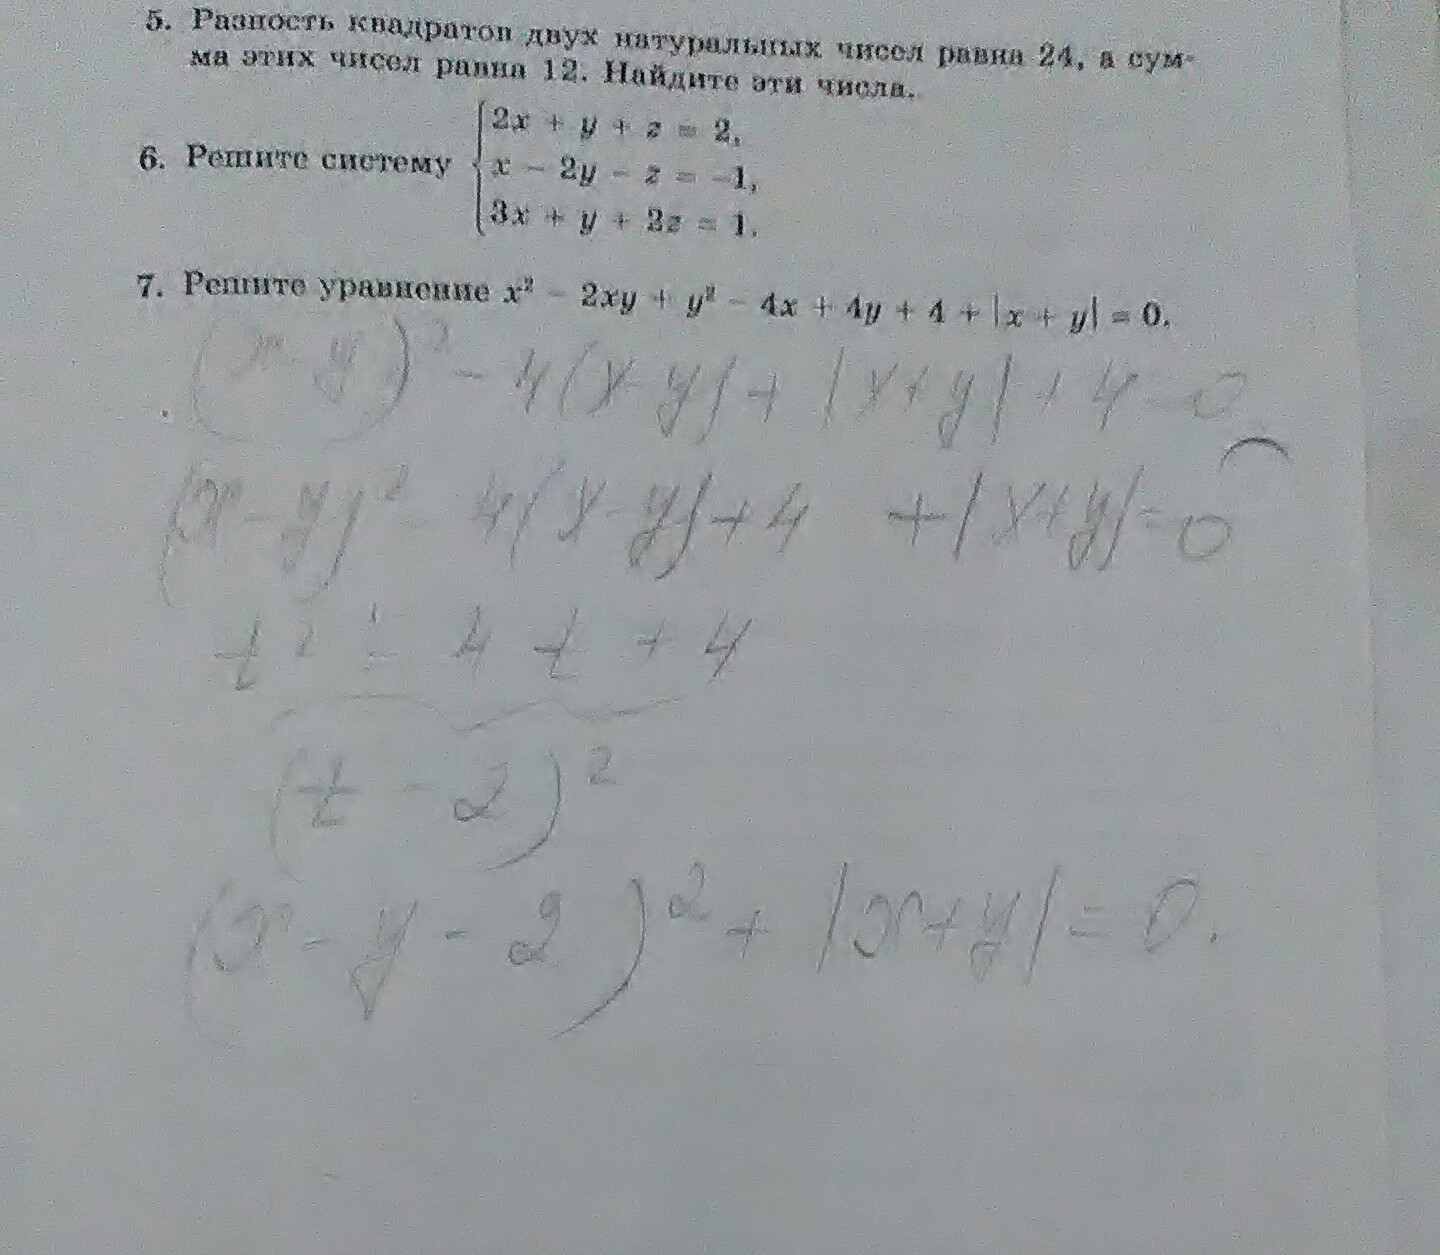 5. Разность квадратов двух натуральных чисел равна 24, а сум-
ма этих чисел равна 12. Найдите эти числа.
6. Решите систему
2x + y + z = 2,
x − 2y − z = −1,
3x + y + 2z = 1.
7. Решите уравнение x² − 2xy + y² − 4x + 4y + 4 + |x + y| = 0.
(x-y)² - 4(x-y) + |x+y| + 4 = 0
(x-y)² - 4(x-y) + 4 + |x+y| = 0
t² - 4t + 4
(t - 2)²
(x - y - 2)² + |x+y| = 0.